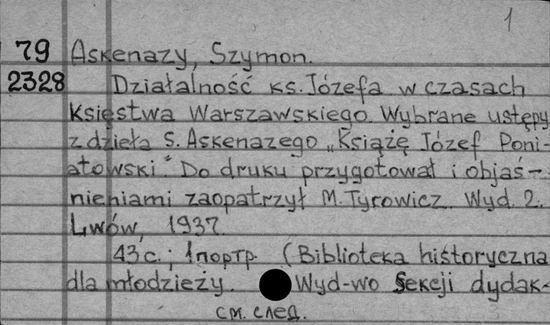 1
79 Askenazy, Szymon.
2328 Działalność ks. Józefa w czasach
Księstwa Warszawskiego. Wybrane ustępy
z dzieła S. Askenazego „Książę Józef Poni-
atowski." Do druku przygotował i objaś-
nieniami zaopatrzył M. Tyrowicz. Wyd. 2.
Lwów, 1937.
43 с.; 1 портр. (Biblioteka historyczna
dla młodzieży. Wyd-wo Sekcji dydak-
см. след.